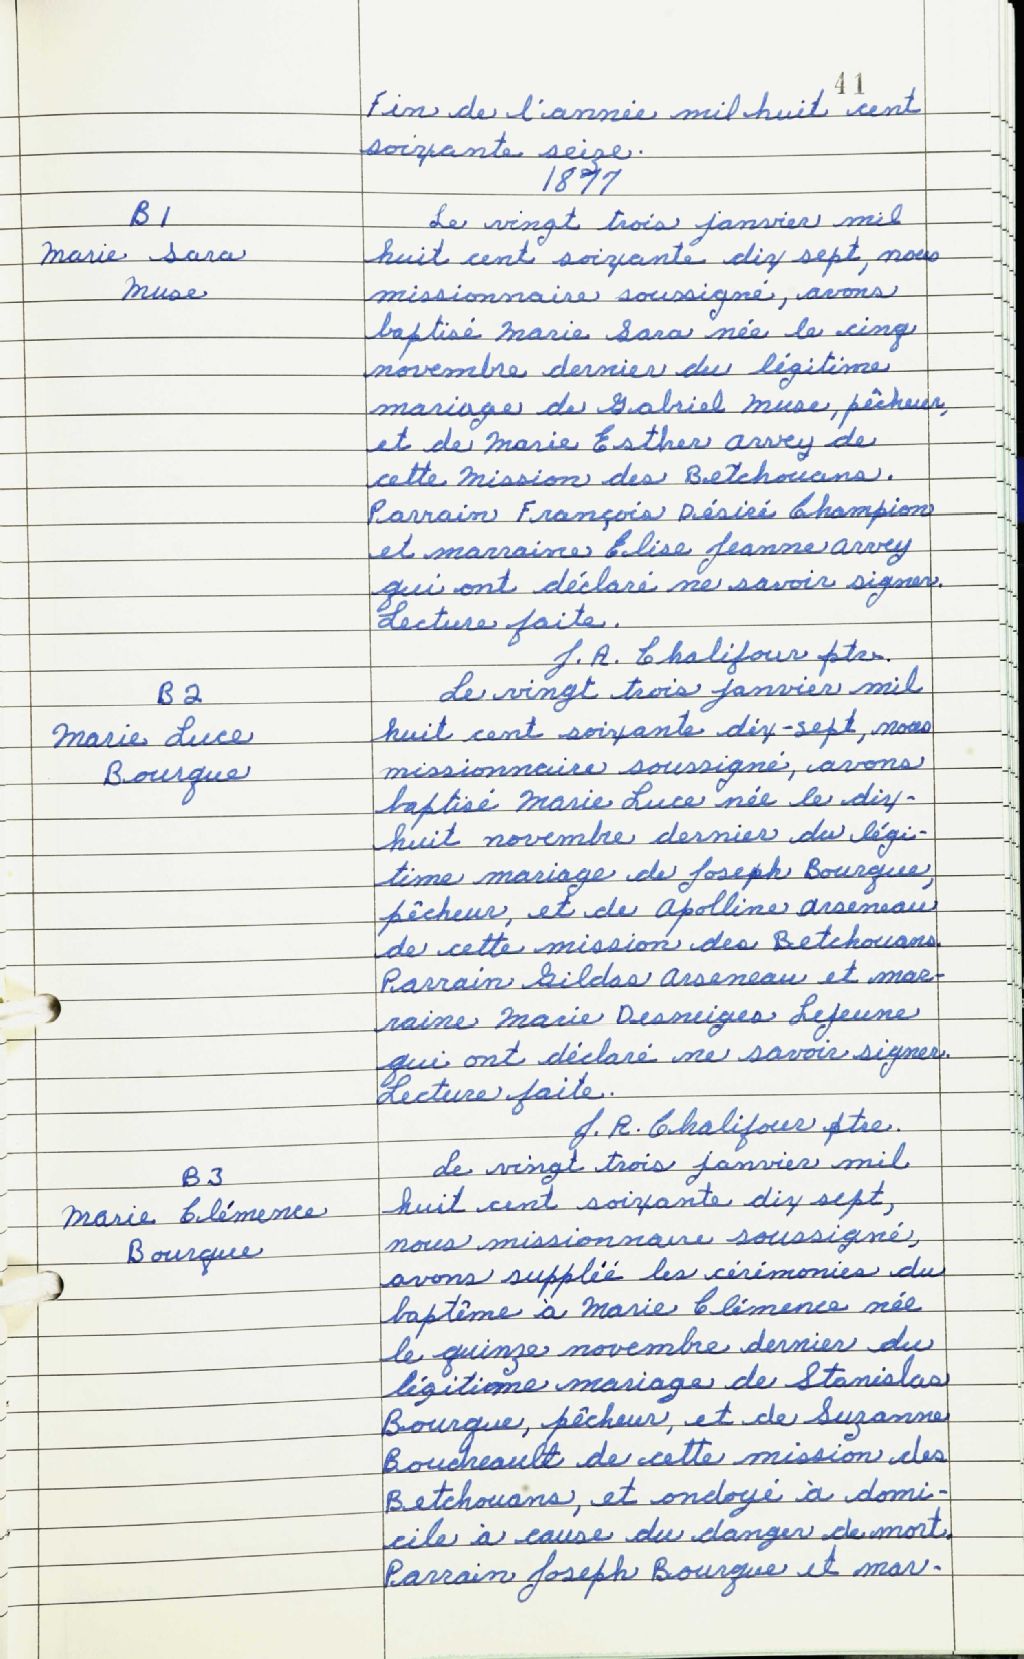 41
Fin de l'année mil huit cent
soixante seize.
1877
B1
Marie Sara
Muse
Le vingt trois janvier mil
huit cent soixante dix sept, nous
missionnaire soussigné, avons
baptisé Marie Sara née le cinq
novembre dernier du légitime
mariage de Gabriel Muse, pêcheur,
et de Marie Esther Arvey de
cette Mission des Betchouans.
Parrain François Désiré Champion
et marraine Elise Jeanne Arvey
qui ont déclaré ne savoir signer.
Lecture faite.
J. R. Chalifour ptre.
B2
Marie Luce
Bourque
Le vingt trois janvier mil
huit cent soixante dix-sept, nous
missionnaire soussigné, avons
baptisé Marie Luce née le dix-
huit novembre dernier du légi-
time mariage de Joseph Bourque,
pêcheur, et de Apolline Arseneau
de cette mission des Betchouans.
Parrain Gildas Arseneau et mar-
raine Marie Desneiges Lejeune
qui ont déclaré ne savoir signer.
Lecture faite.
J. R. Chalifour ptre.
B3
Marie Clémence
Bourque
Le vingt trois janvier mil
huit cent soixante dix sept,
nous missionnaire soussigné,
avons suppléé les cérémonies du
baptême à Marie Clémence née
le quinze novembre dernier du
légitime mariage de Stanislas
Bourque, pêcheur, et de Suzanne
Boudreault de cette mission des
Betchouans, et ondoyé à domi-
cile à cause du danger de mort.
Parrain Joseph Bourque et mar-